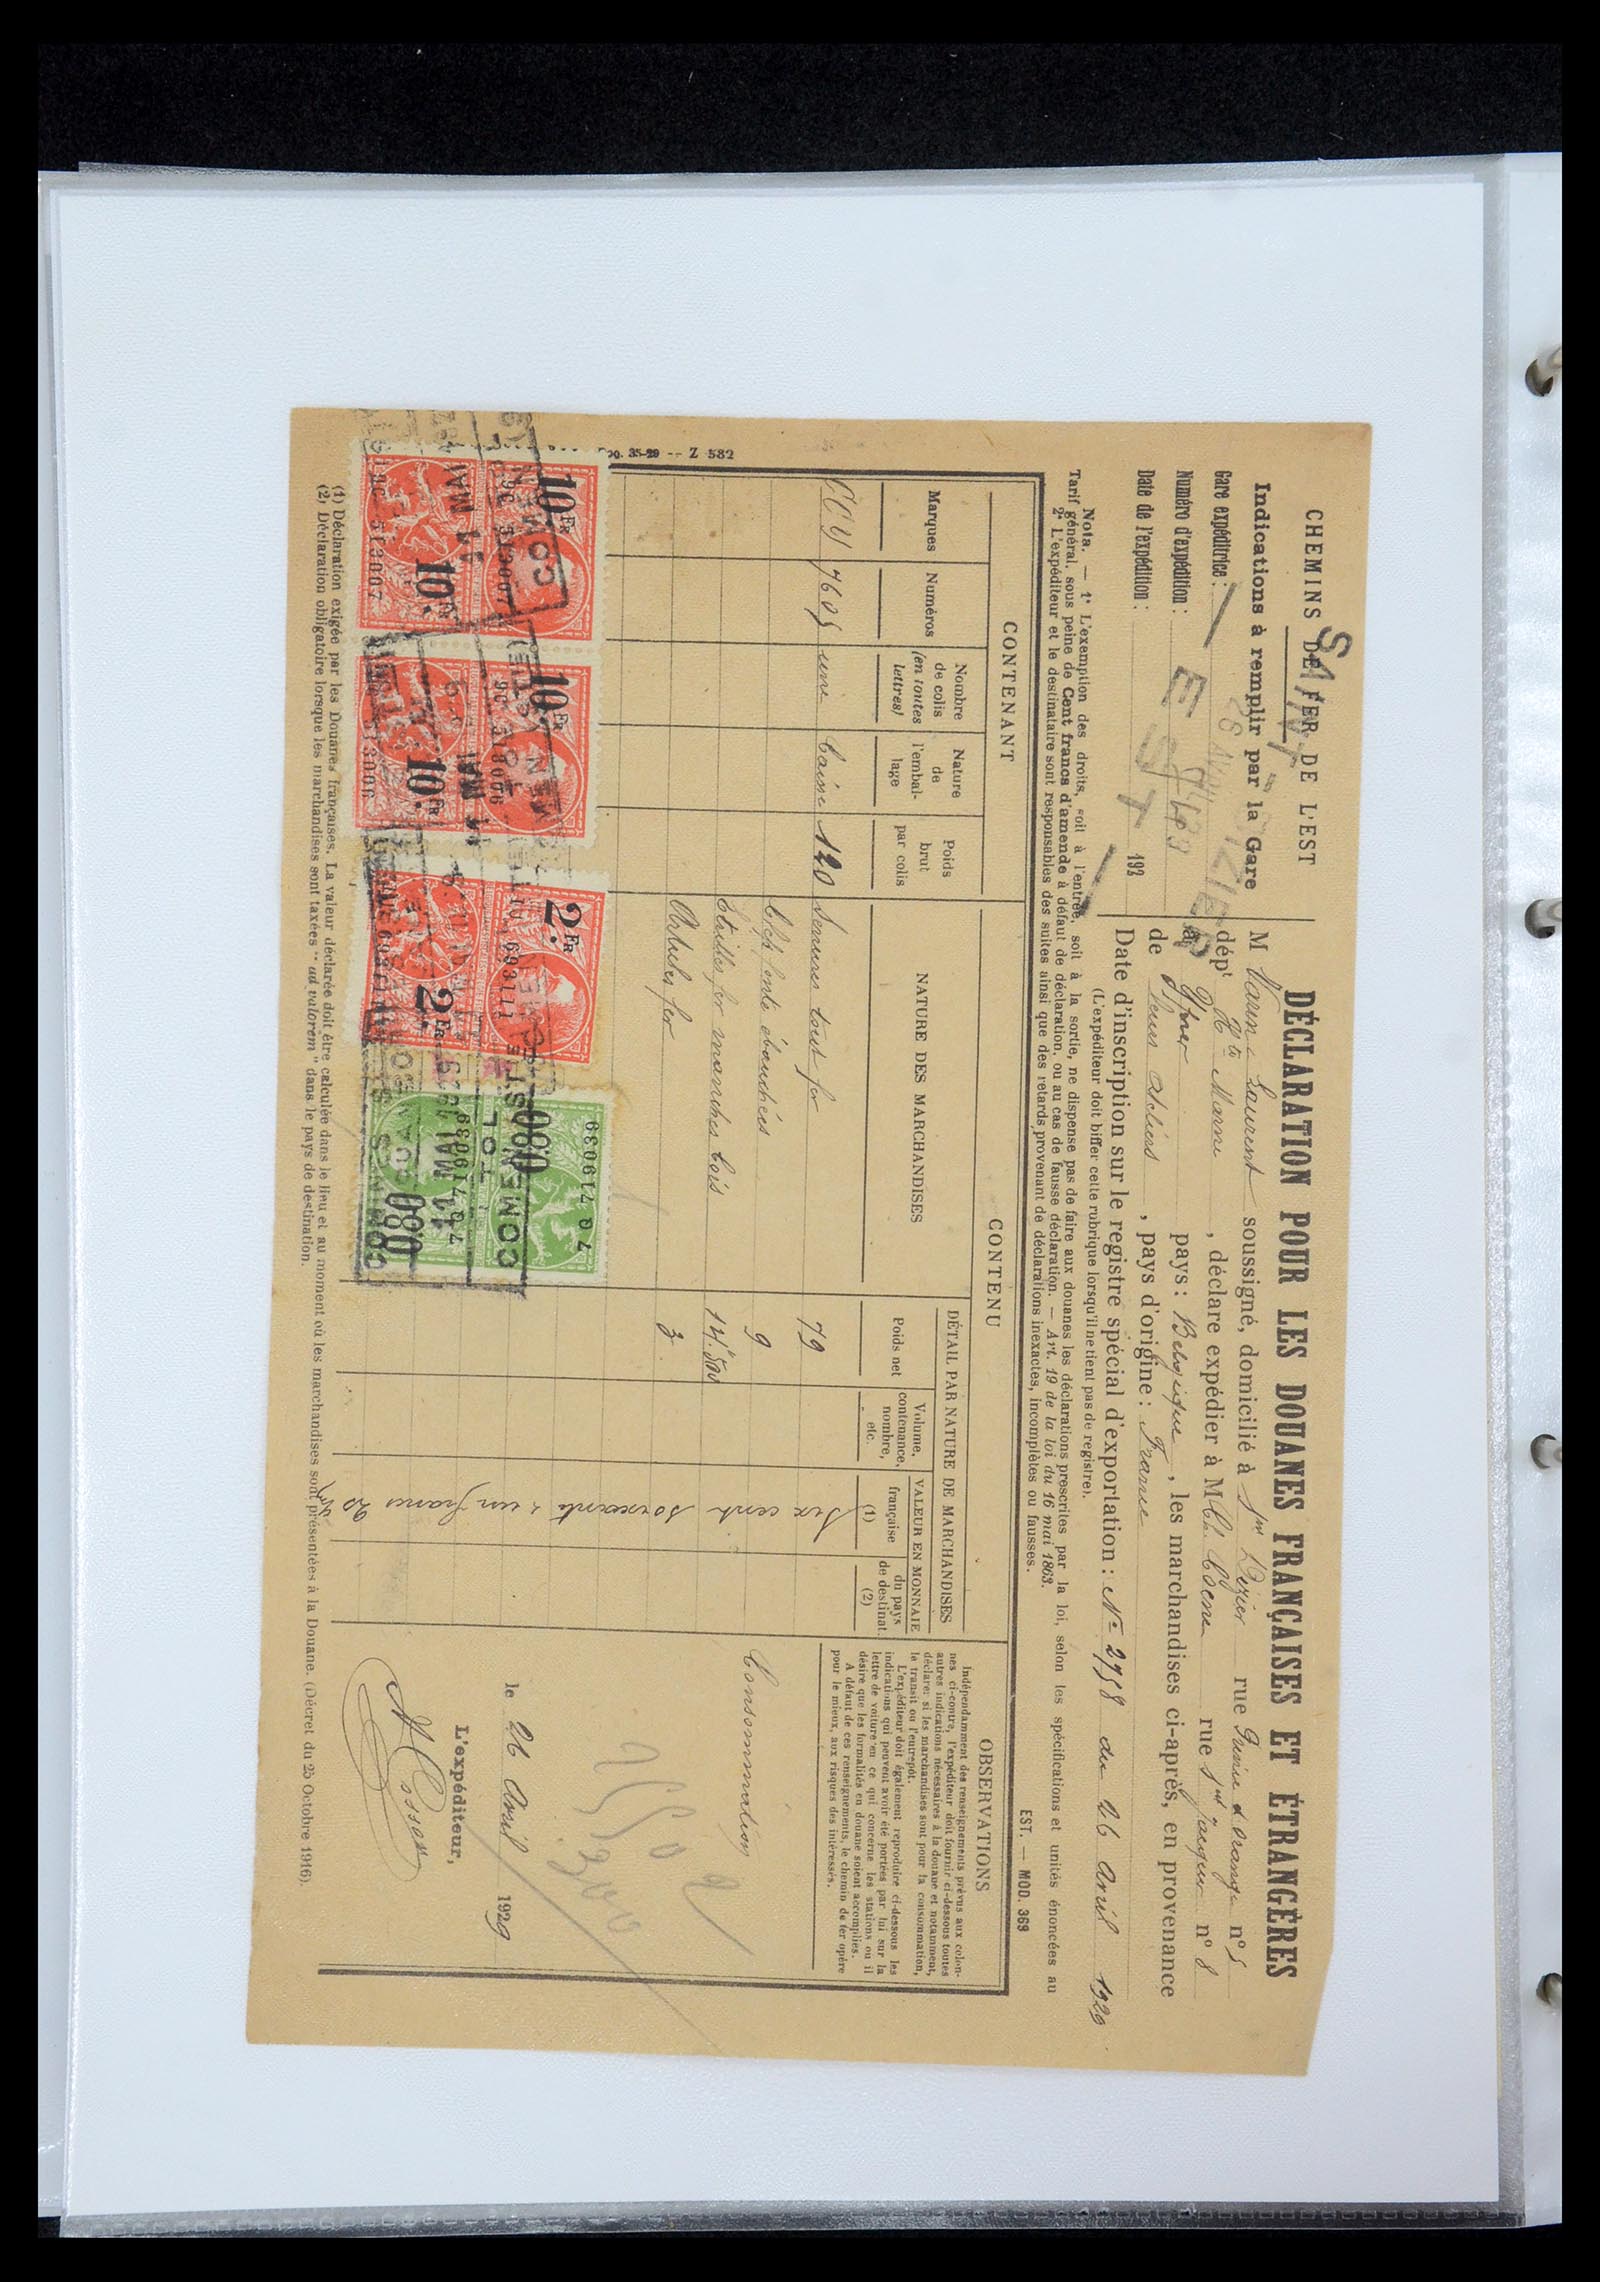 CHEMINS DE FER DE L'EST
SAINT DIZIER
Indications à remplir par la Gare
Gare expéditrice :
Numéro d'expédition :
Date de l'expédition : 192
EST
DÉCLARATION POUR LES DOUANES FRANÇAISES ET ÉTRANGÈRES
M Laurent soussigné, domicilié à St Dizier rue n° 5
dépt Hte Marne, déclare expédier à M rue St Jacques n° 8
à Yprer pays : Belgique, les marchandises ci-après, en provenance
de leurs Ateliers, pays d'origine : France
Date d'inscription sur le registre spécial d'exportation : N° 2758 du 26 Avril 1929
(L'expéditeur doit biffer cette rubrique lorsqu'il ne tient pas de registre).
Nota. — 1° L'exemption des droits, soit à l'entrée, soit à la sortie, ne dispense pas de faire aux douanes les déclarations prescrites par la loi, selon les spécifications et unités énoncées au
Tarif général, sous peine de Cent francs d'amende à défaut de déclaration, ou au cas de fausse déclaration. — Art. 19 de la loi du 16 mai 1863.
2° L'expéditeur et le destinataire sont responsables des suites ainsi que des retards provenant de déclarations inexactes, incomplètes ou fausses.
EST. — MOD. 369
CONTENANT
CONTENU
OBSERVATIONS
Marques
Numéros
Nombre de colis (en toutes lettres)
Nature de l'embal- lage
Poids brut par colis
NATURE DES MARCHANDISES
DÉTAIL PAR NATURE DE MARCHANDISES
Poids net
Volume, contenance, nombre, etc.
VALEUR EN MONNAIE
française (1)
du pays de destinat. (2)
Indépendamment des renseignements prévus aux colon-
nes ci-contre, l'expéditeur doit fournir ci-dessous toutes
autres indications nécessaires à la douane et notamment,
déclarer si les marchandises sont pour la consommation,
le transit ou l'entrepôt.
L'expéditeur doit également reproduire ci-dessous les
indications qui peuvent avoir été portées par lui sur la
lettre de voiture en ce qui concerne les stations ou il
désire que les formalités en douane soient accomplies.
A défaut de ces renseignements, le chemin de fer opère
pour le mieux, aux risques des intéressés.
7605 une Caisse 120 Serrures tout fer 79
Clefs fonte ébauchées 9
Etrilles fer manches bois 14.500
Articles fer 3
Six cent soixante & un francs 20
Consommation
le 26 Avril 1929
L'expéditeur,
10 FR
10 FR
10 FR
10 FR
2 FR
2 FR
0.80
0.80
513007
513007
513006
513006
693111
719039
719039
COMEN
COMEN EST
TOL
11 MAI 1929
DOUANES
COMINES
(1) Déclaration exigée par les Douanes françaises. La valeur déclarée doit être calculée dans le lieu et au moment où les marchandises sont présentées à la Douane. (Décret du 25 Octobre 1916).
(2) Déclaration obligatoire lorsque les marchandises sont taxées "ad valorem" dans le pays de destination.
35-29 -- Z 582